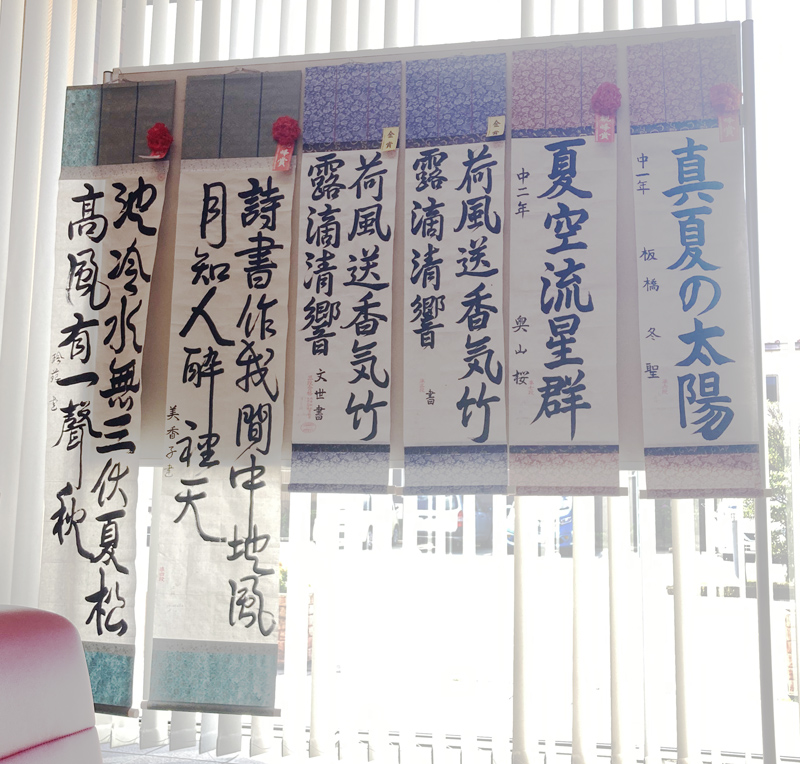 真夏の太陽
中一年 板橋 冬聖
夏空流星群
中二年 奥山 桜
荷風送香気竹
露滴清響
書
金賞
荷風送香気竹
露滴清響
文世書
金賞
詩書作我閒中地風
月知人醉裡天
美香子書
池冷水無三伏夏松
高風有一聲秋